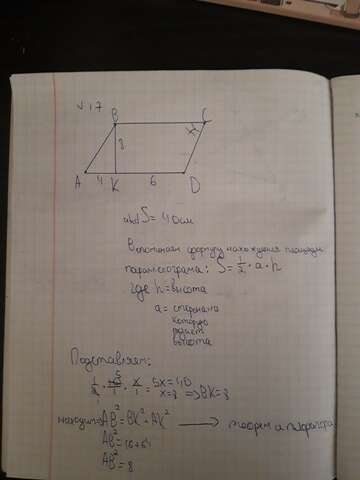 √17
B C
8
x
A 4 K 6 D
abcd S = 40 см
Вспоминаем формулу нахождения площади
параллелограма: S = 1/2 · a · h
где h = высота
a = сторона на
которую
падает
высота
Подставляем:
1/2 · 10 5/1 · x/1 = 5x = 40
x = 8 => BK = 8
находим AB² = BK² + AK² → теорема пифагора
AB² = 16 + 64
AB² = 8